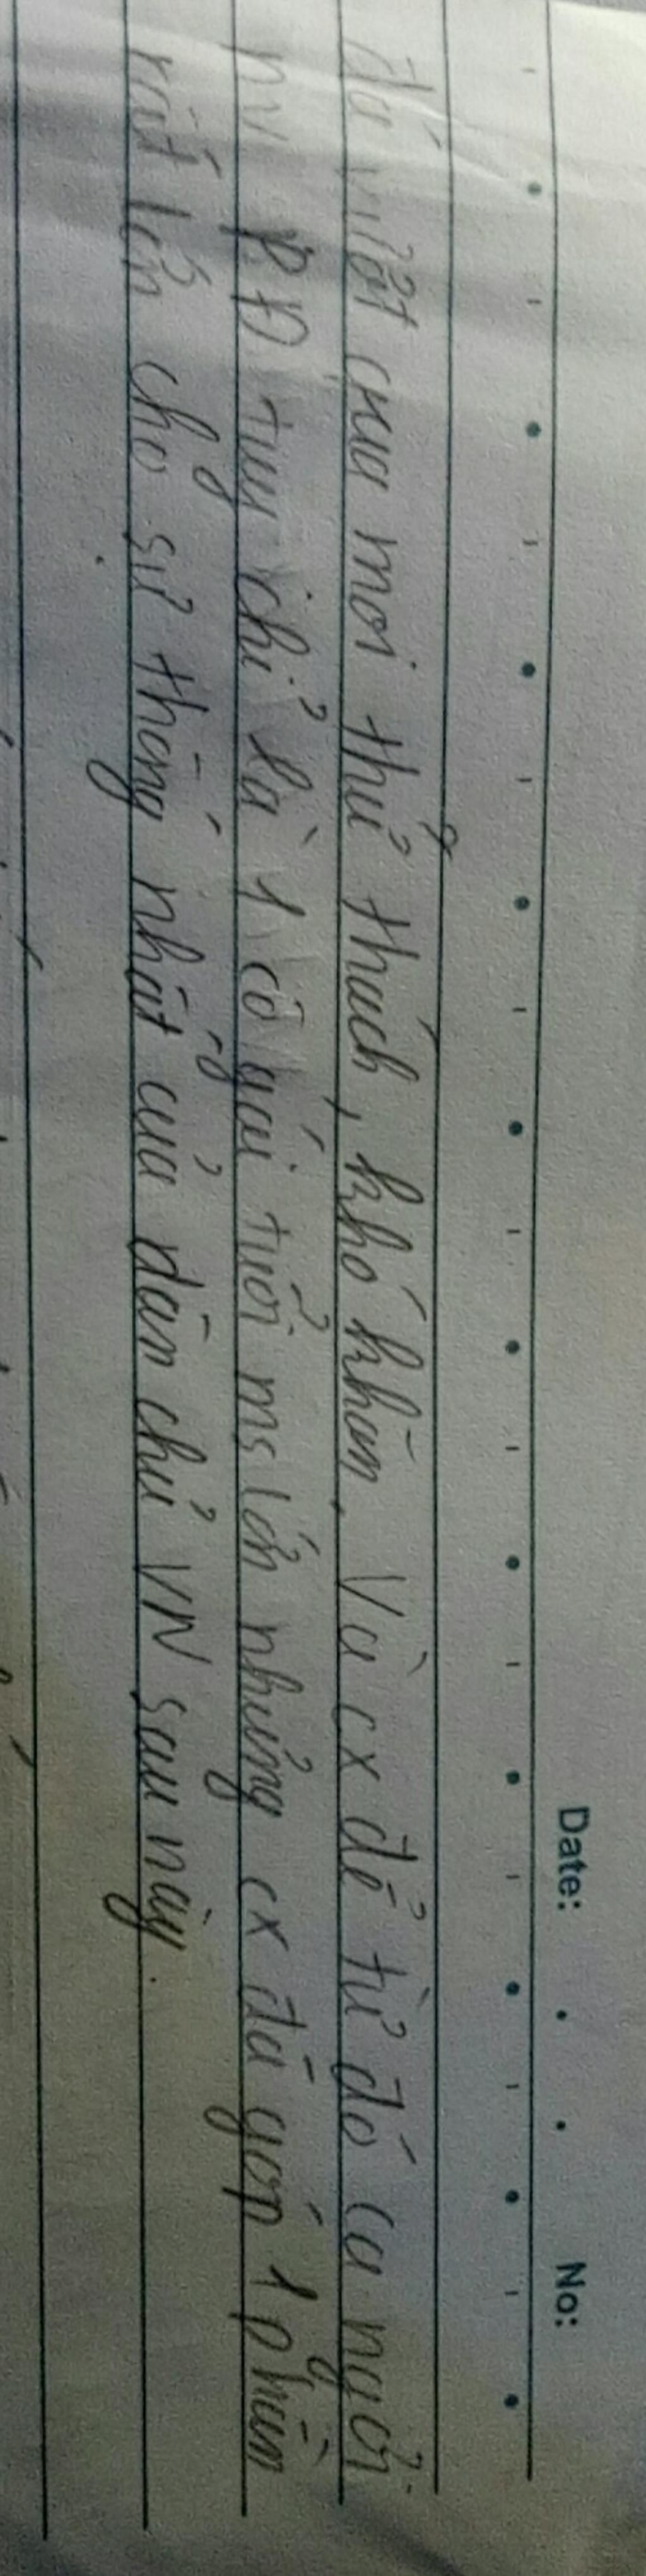 Date: . . No:
đã vượt qua mọi thử thách, khó khăn. Và cx để từ đó ca ngợi
nv PĐ tuy chỉ là 1 cô gái tuổi ms lớn nhưng cx đã góp 1 phần
rất lớn cho sự thống nhất của dân chủ VN sau này.